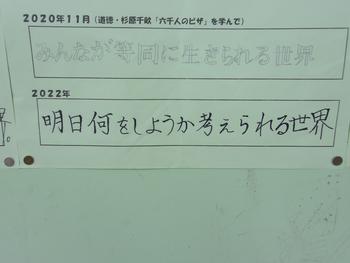 2020年11月(道徳・杉原千畝「六千人のビザ」を学んで)
みんなが等同に生きられる世界
2022年
明日何をしようか考えられる世界
界。